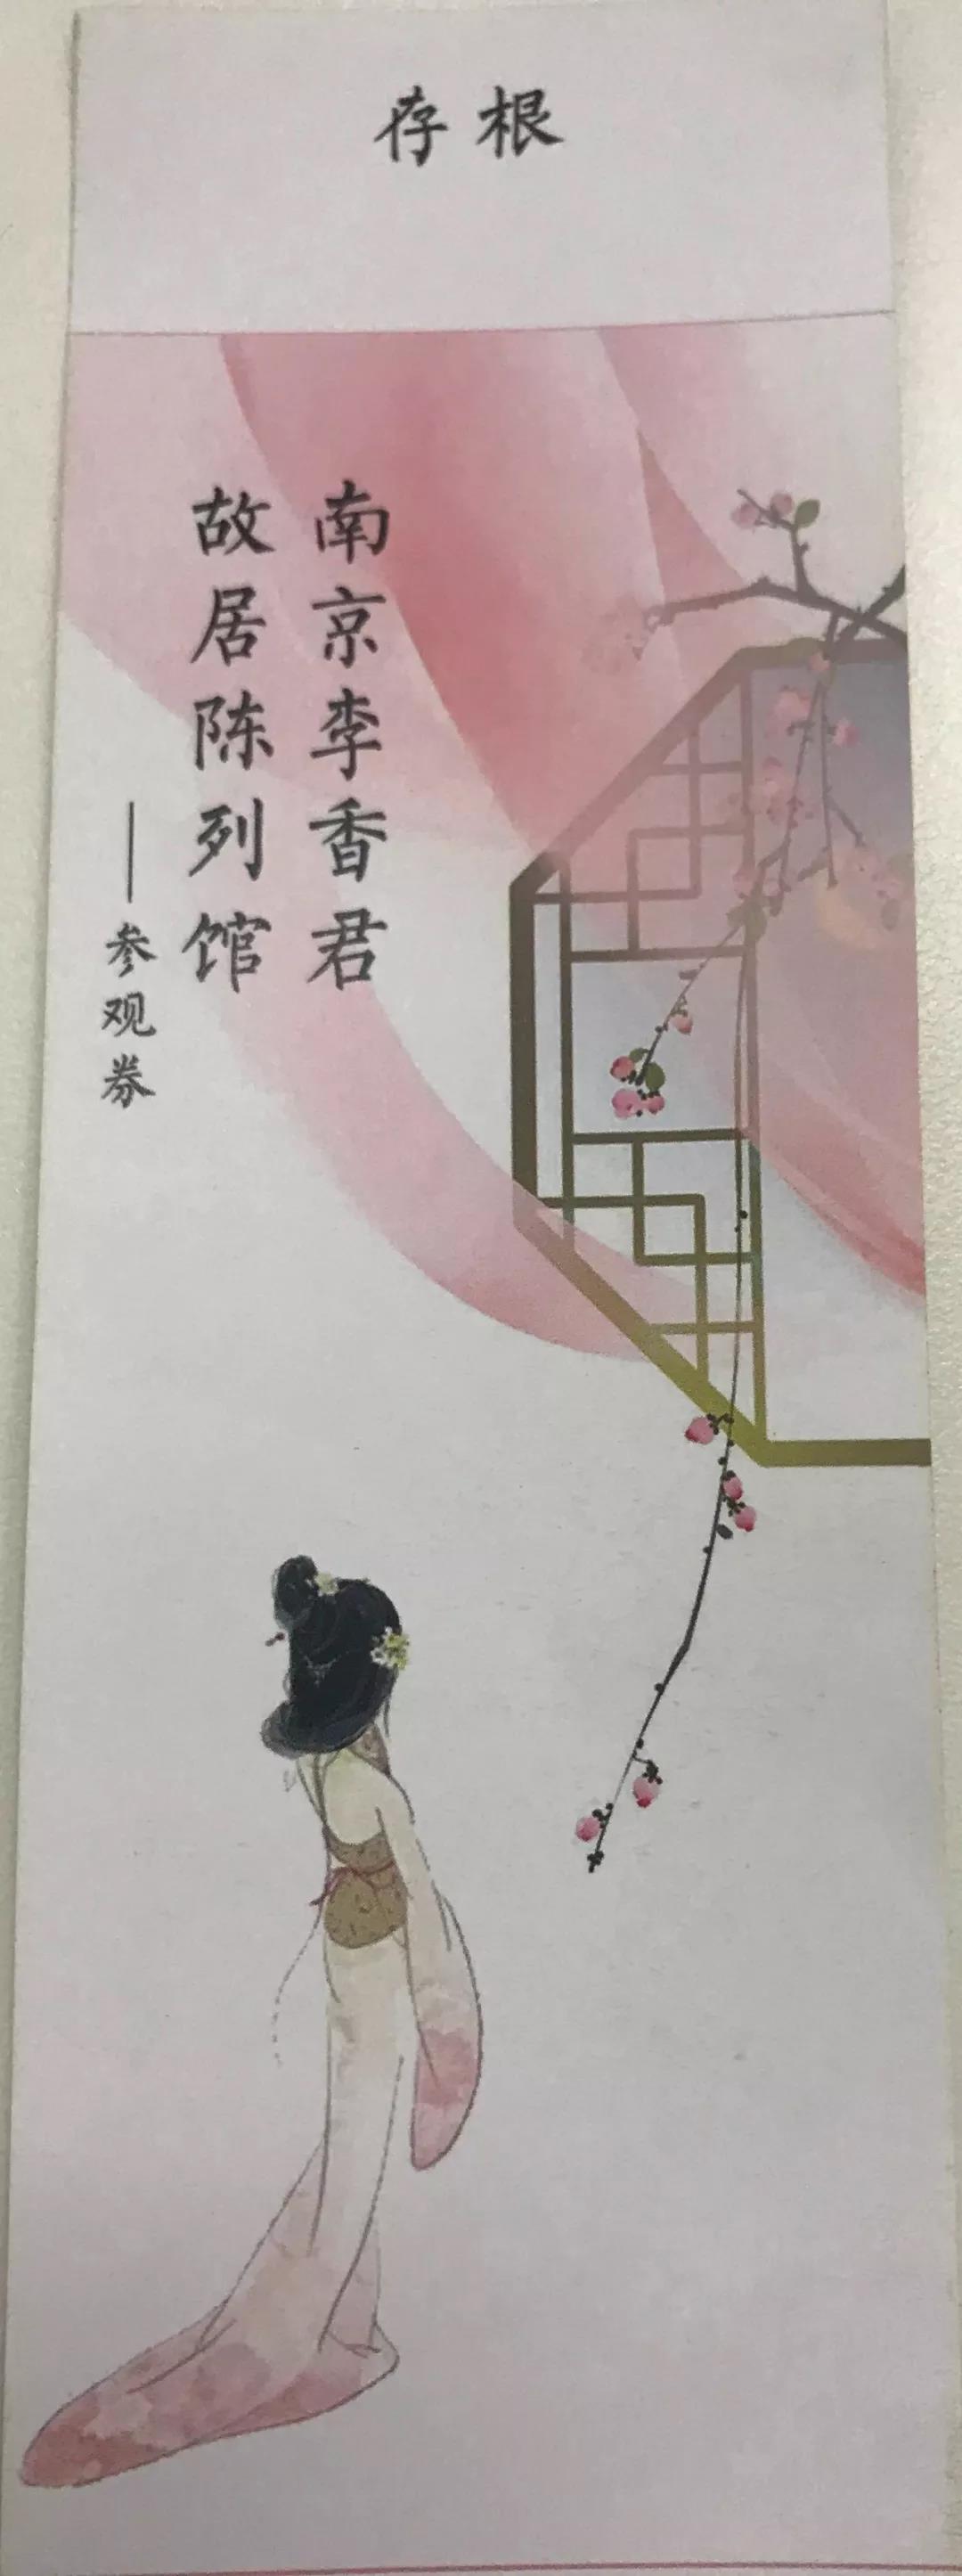 存根
南京李香君
故居陈列馆
——参观券